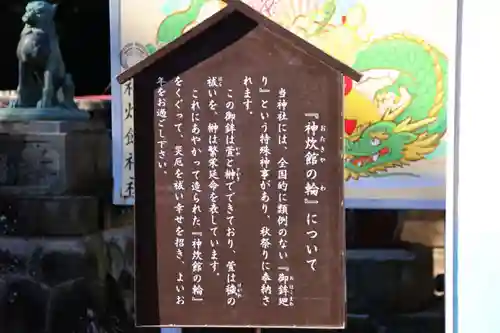 『神炊館の輪』について
おたきや
わ
当神社には、全国的に類例のない『御鉾地
おほこまわ
り』という特殊神事があり、秋祭りに奉納さ
れます。
この御鉾は萱と榊でできており、萱は穢の
かや
祓いを、榊は繁栄延命を表しています。
これにあやかって造られた『神炊館の輪』
をくぐって、災厄を祓い幸せを招き、よいお
年をお過ごし下さい。
神炊館神社